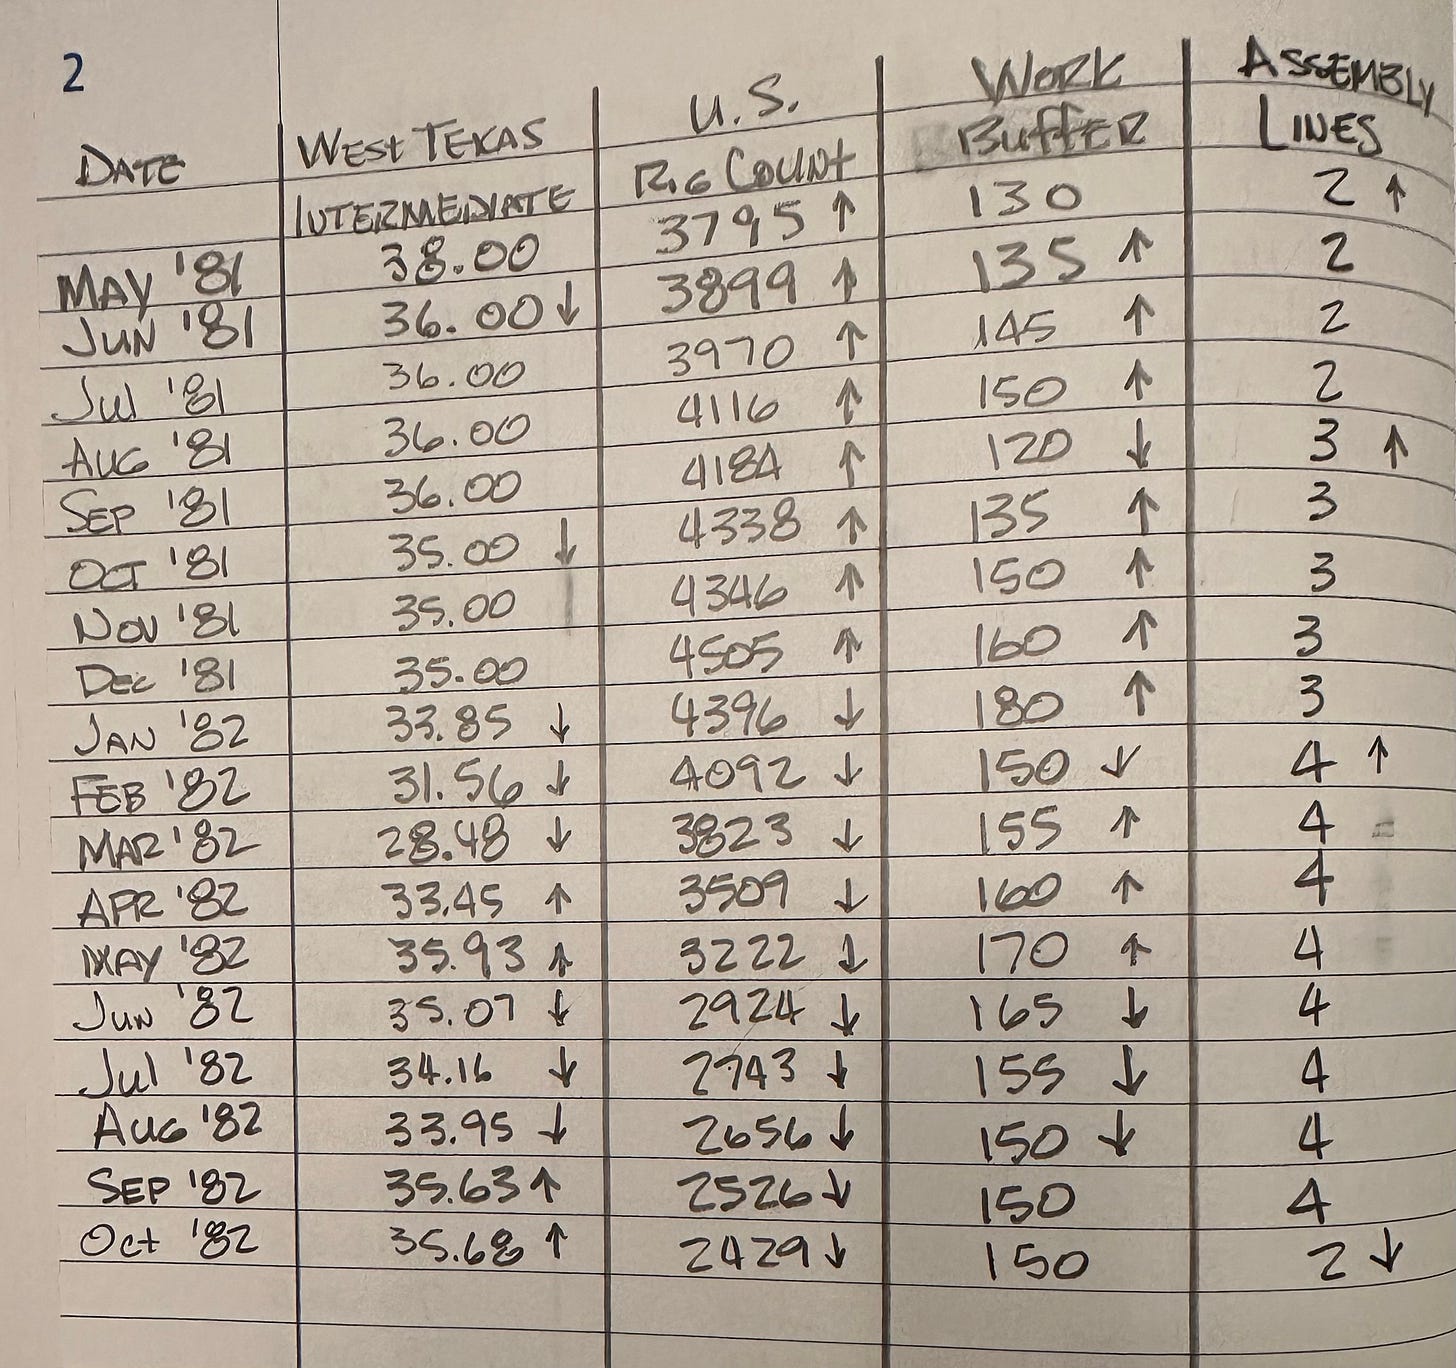 2
DATE WEST TEXAS INTERMEDIATE U.S. RIG COUNT WORK BUFFER ASSEMBLY LINES
MAY '81 38.00 3795 ↑ 130 2 ↑
JUN '81 36.00 ↓ 3899 ↑ 135 ↑ 2
Jul '81 36.00 3970 ↑ 145 ↑ 2
AUG '81 36.00 4116 ↑ 150 ↑ 2
SEP '81 36.00 4184 ↑ 120 ↓ 3 ↑
OCT '81 35.00 ↓ 4338 ↑ 135 ↑ 3
NOV '81 35.00 4346 ↑ 150 ↑ 3
DEC '81 35.00 4505 ↑ 160 ↑ 3
JAN '82 33.85 ↓ 4396 ↓ 180 ↑ 3
FEB '82 31.56 ↓ 4092 ↓ 150 ↓ 4 ↑
MAR '82 28.48 ↓ 3823 ↓ 155 ↑ 4
APR '82 33.45 ↑ 3509 ↓ 160 ↑ 4
MAY '82 35.93 ↑ 3222 ↓ 170 ↑ 4
JUN '82 35.07 ↓ 2924 ↓ 165 ↓ 4
Jul '82 34.16 ↓ 2743 ↓ 155 ↓ 4
AUG '82 33.95 ↓ 2656 ↓ 150 ↓ 4
SEP '82 35.63 ↑ 2526 ↓ 150 4
Oct '82 35.68 ↑ 2429 ↓ 150 2 ↓